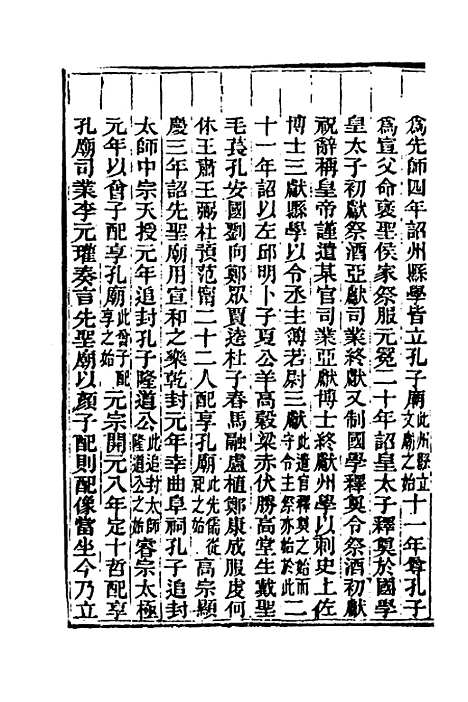 爲先師四年詔州縣學皆立孔子廟此州縣立文廟之始十一年尊孔子
爲宣父命褒聖侯家祭服元冕二十年詔皇太子釋奠於國學
皇太子初獻祭酒亞獻司業終獻又制國學釋奠令祭酒初獻
祝辭稱皇帝謹遣某官司業亞獻博士終獻州學以刺史上佐
博士三獻縣學以令丞主簿若尉三獻此遣官釋奠之始而守令主祭亦始於此二
十一年詔以左邱明卜子夏公羊高穀梁赤伏勝高堂生戴聖
毛萇孔安國劉向鄭眾賈逵杜子春馬融盧植鄭康成服虔何
休王肅王弼杜預范甯二十二人配享孔廟此先儒從祀之始高宗顯
慶三年詔先聖廟用宣和之樂乾封元年幸曲阜祠孔子追封
太師中宗天授元年追封孔子隆道公此追封太師隆道公之始睿宗太極
元年以曾子配享孔廟此曾子配享之始元宗開元八年定十哲配享
孔廟司業李元瓘奏言先聖廟以顏子配則配像當坐今乃立